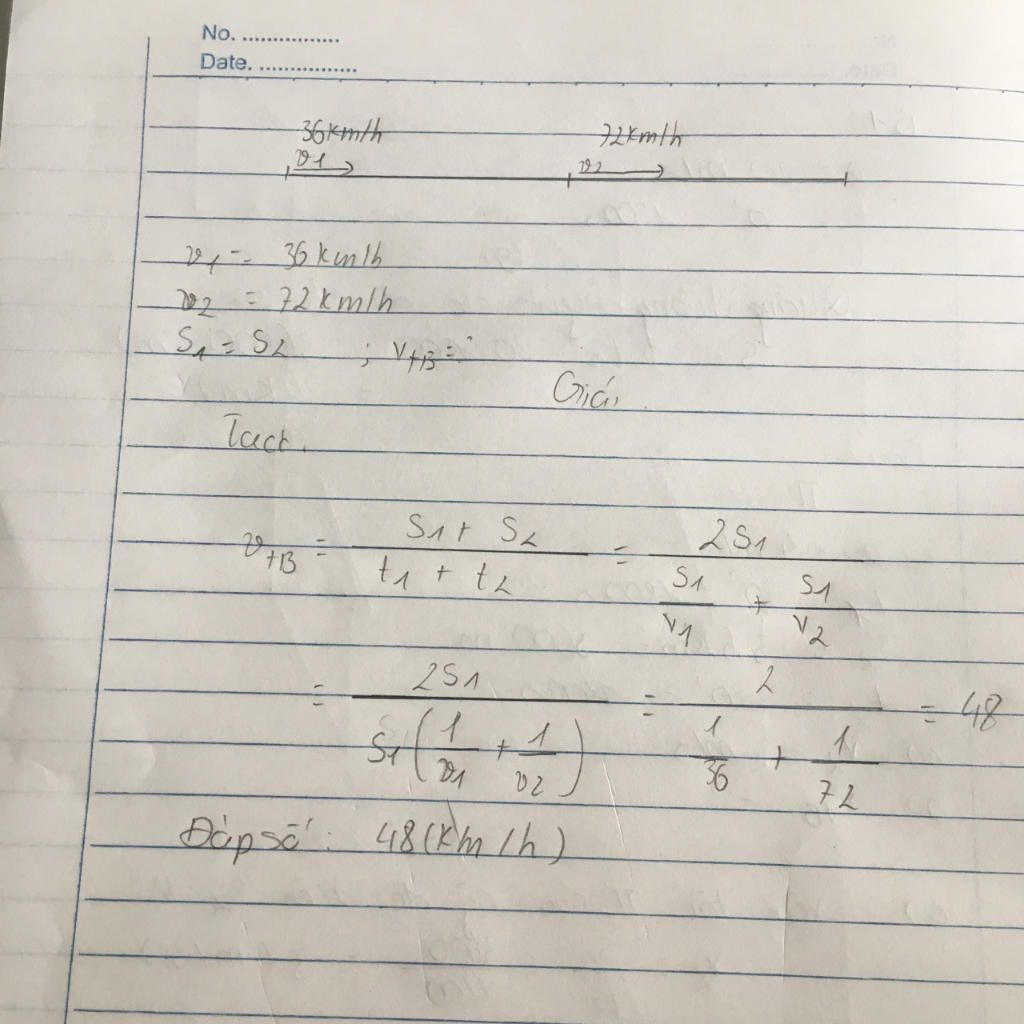 No. ................
Date. ................
36km/h 72km/h
v1 v2
v1 = 36 km/h
v2 = 72km/h
S1 = S2 ; vtB = ?
Giải
Ta có
vtB = (S1 + S2)/(t1 + t2) = 2S1/(S1/v1 + S1/v2)
= 2S1/(S1(1/v1 + 1/v2)) = 2/(1/36 + 1/72) = 48
Đáp số: 48(km/h)